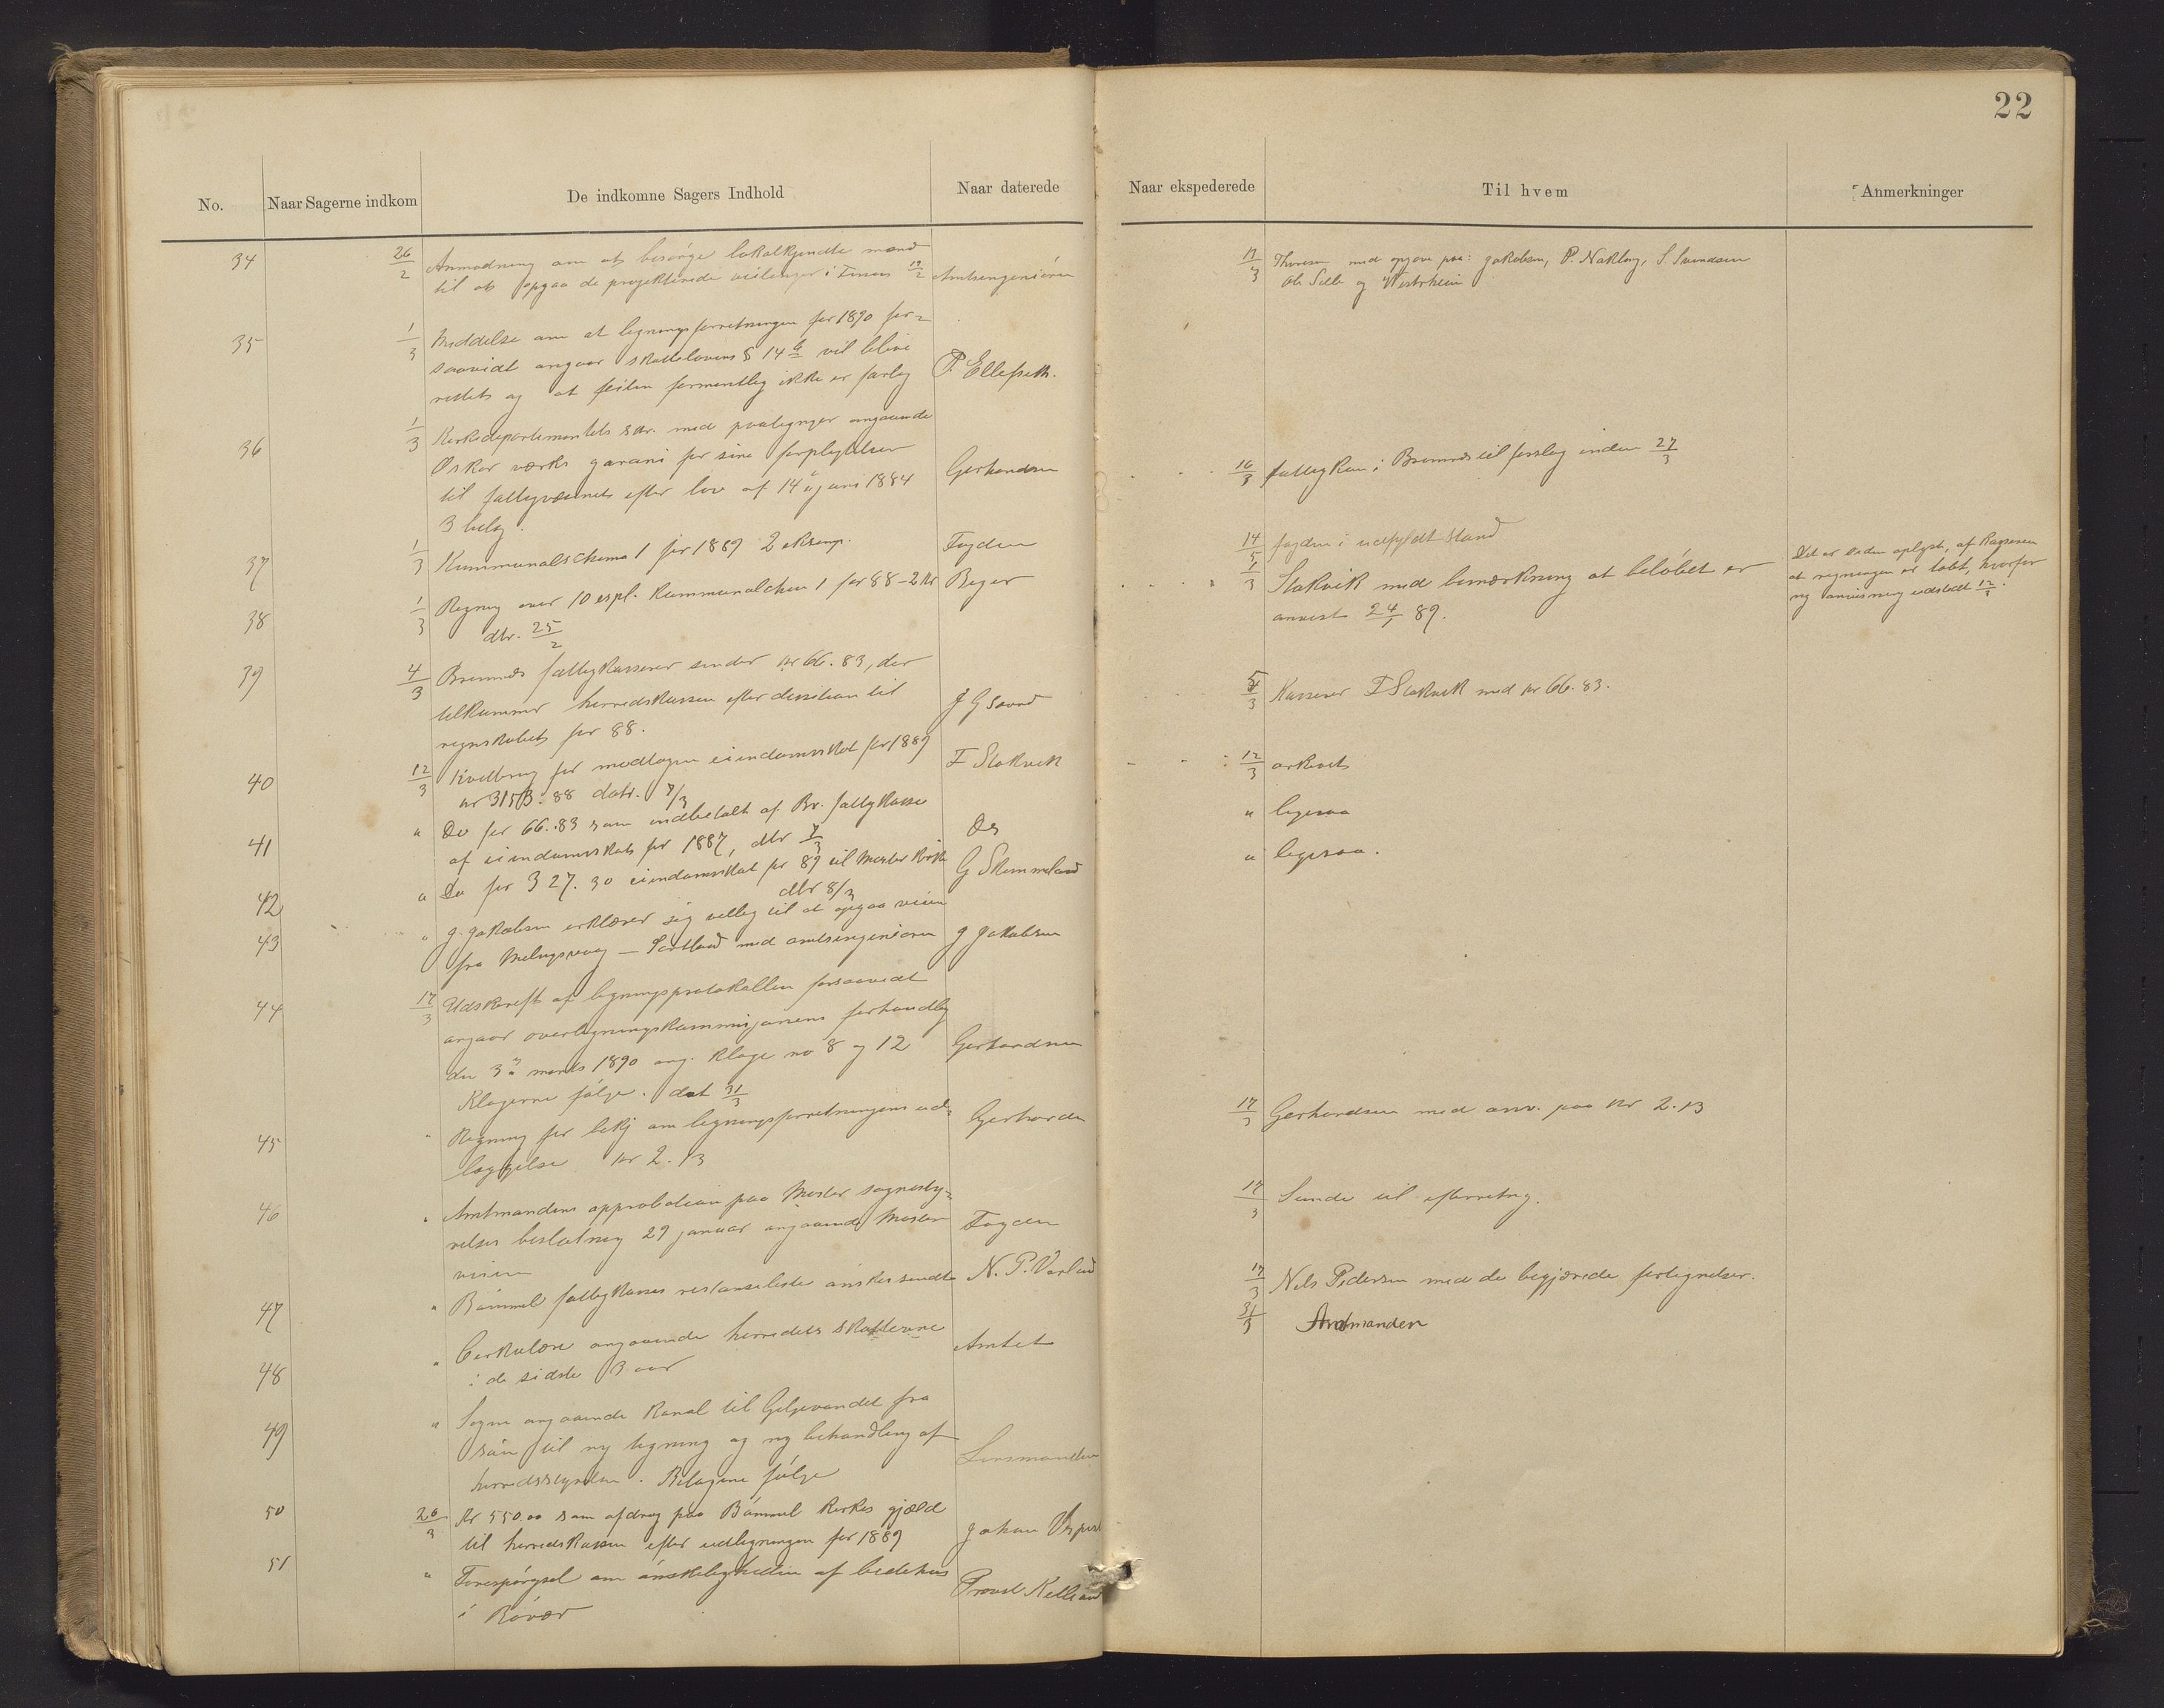 22
No.
Naar Sagerne indkom
De indkomne Sagers Indhold
Naar daterede
Naar ekspederede
Til hvem
Anmerkninger
34
26/2
Anmodning om at besørge lokalkjendte mænd
til at opgaa de projekterede veilænger i Finnes 19/2
Amtsingeniøren
17/3
Thoresen med opgave paa: Jakobsen, P. Nakling, S. Svendsen
Ole Selle og Westrheim
35
1/3
Meddelse om at ligningsforretningen for 1890 for-
saavidt angaar skattelovens § 14 b vil blive
rettet og at feilen formentlig ikke er farlig
P. Ellefseth.
36
1/3
Kirkedepartementets skr. med paategninger angaaende
Oskar værks garanti for sine forpligtelser
til fattigvæsenet efter lov af 14de juni 1884
3 bilag.
Gerhardsen
16/3
fattigkom i Bremnes til forslag inden 27/3
37
1/3
Kommunalschema 1 for 1889 2 eksemp.
Fogden
14/5
fogden i udfyldt stand
38
1/3
Regning over 10 expl. kommunalchem 1 for 88 - 2 Kr
dtr. 25/2
Beyer
1/3
Stokvik med bemærkning at beløbet er
anvist 24/1 89.
Det er siden oplyst, af Kassereren
at regningen er tabt, hvorfor
ny anvisning udstedt 12/5.
39
4/3
Bremnes fattigkasserer sender kr 66.83, der
tilkommer herredskassen efter desission til
regnskabet for 88.
J G Sævd
5/3
Kasserer T Stokvik med kr 66.83.
40
12/3
Kvittering for modtagen eiendomsskat for 1889
kr 3153.88 datr. 7/3
T Stokvik
12/3
arkivet
41
"
Do for 66.83 som indbetalt af Br. fattigkasse
af eiendomsskat for 1887, dtr 7/3
Ds
"
ligesaa
42
"
Do for 327.30 eiendomsskat for 89 til Moster kirke
dtr 8/3
G Skimmeland
"
ligesaa.
43
"
J. Jakobsen erklærer sig villig til at opgaa veien
fra Melingsvaag - Sørtland med amtsingeniøren
J Jakobsen
44
17/3
Udskrift af ligningsprotokollen forsaavidt
angaar overligningskommisjonens forhandling
den 3de marts 1890 ang. klage no 8 og 12
Klagerne følge. dat 31/3
Gerhardsen
45
"
Regning for bekj om ligningsforretningens ud-
læggelse kr 2.13
Gerhardsen
17/3
Gerhardsen med anv. paa kr 2.13
46
"
Amtmandens approbation paa Moster sognesty-
relses beslutning 29 januar angaaende Moster
veien
Fogden
17/3
Sunde til efterretng.
47
"
Bømmel fattigkasses restanseliste ønskes sendt
N. P. Vorland
17/3
Nils Pedersen med de begjærede fortegnelser.
48
"
Cirkulære angaaende herredets skatteevne
i de sidste 3 aar
Amtet
31/3
Amtmanden
49
"
Sagen angaaende kanal til Giljevandet fra
søen til ny tegning og ny behandling af
herredsstyrelsen. Bilagene følge
Lensmanden
50
20/3
Kr 550.00 som afdrag paa Bømmel kirkes gjæld
til herredskassen efter udligningen for 1889
Johan Vespest
51
"
Forespørgsel om ønskeligheden af bedehus
i Røvær
Provst Kielland